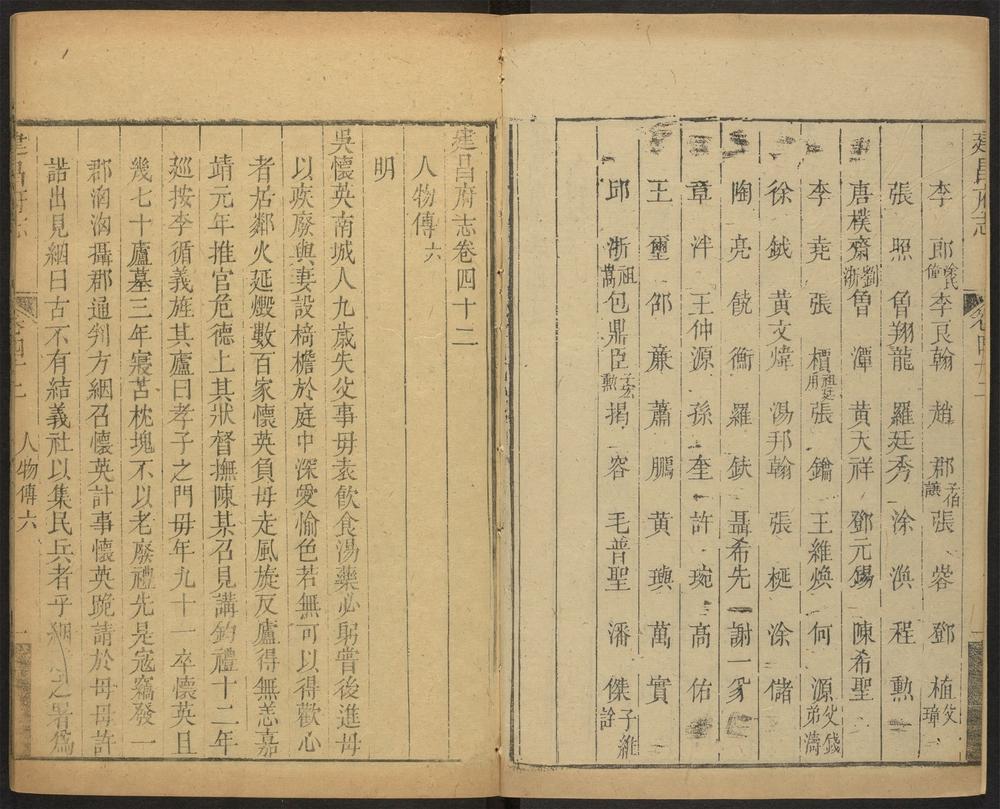 建昌府志
李郎 徐氏 李良翰 趙郡 子伯讓 張蓉 鄧植 父璋
張照 魯翔龍 羅廷秀 涂渙 程勲
唐樸齋 劉浙 魯潭 黃天祥 鄧元錫 陳希聖
李堯 張檟 祖廷用 張鑰 王維煥 何源 父錢弟濤
徐鉞 黃文煒 湯邦翰 張梴 涂儲
陶亮 饒衡 羅鈇 聶希先 謝一豸
章泮 王仲源 孫奎 許琬 高佑
王璽 邵㢘 蕭鵬 黃璵 萬實
邱浙 祖暠 包鼎臣 子宏勲 揭容 毛普聖 潘傑 子維詮
建昌府志卷四十二
人物傳六
明
吳懷英南城人九歲失父事毋袁飲食湯藥必躬嘗後進毋
以疾廢與妻設椅檐於庭中深愛愉色若無可以得歡心
者居鄰火延燬數百家懷英負母走風旋反廬得無恙嘉
靖元年推官危德上其狀督撫陳某召見講鈞禮十二年
廵按李循義旌其廬曰孝子之門毋年九十一卒懷英且
幾七十廬墓三年寢苫枕塊不以老廢禮先是寇竊發一
郡洶洶攝郡通判方絪召懷英計事懷英跪請於毋毋許
諾出見絪曰古不有結義社以集民兵者乎絪之署爲
建昌府志
人物傳六
一